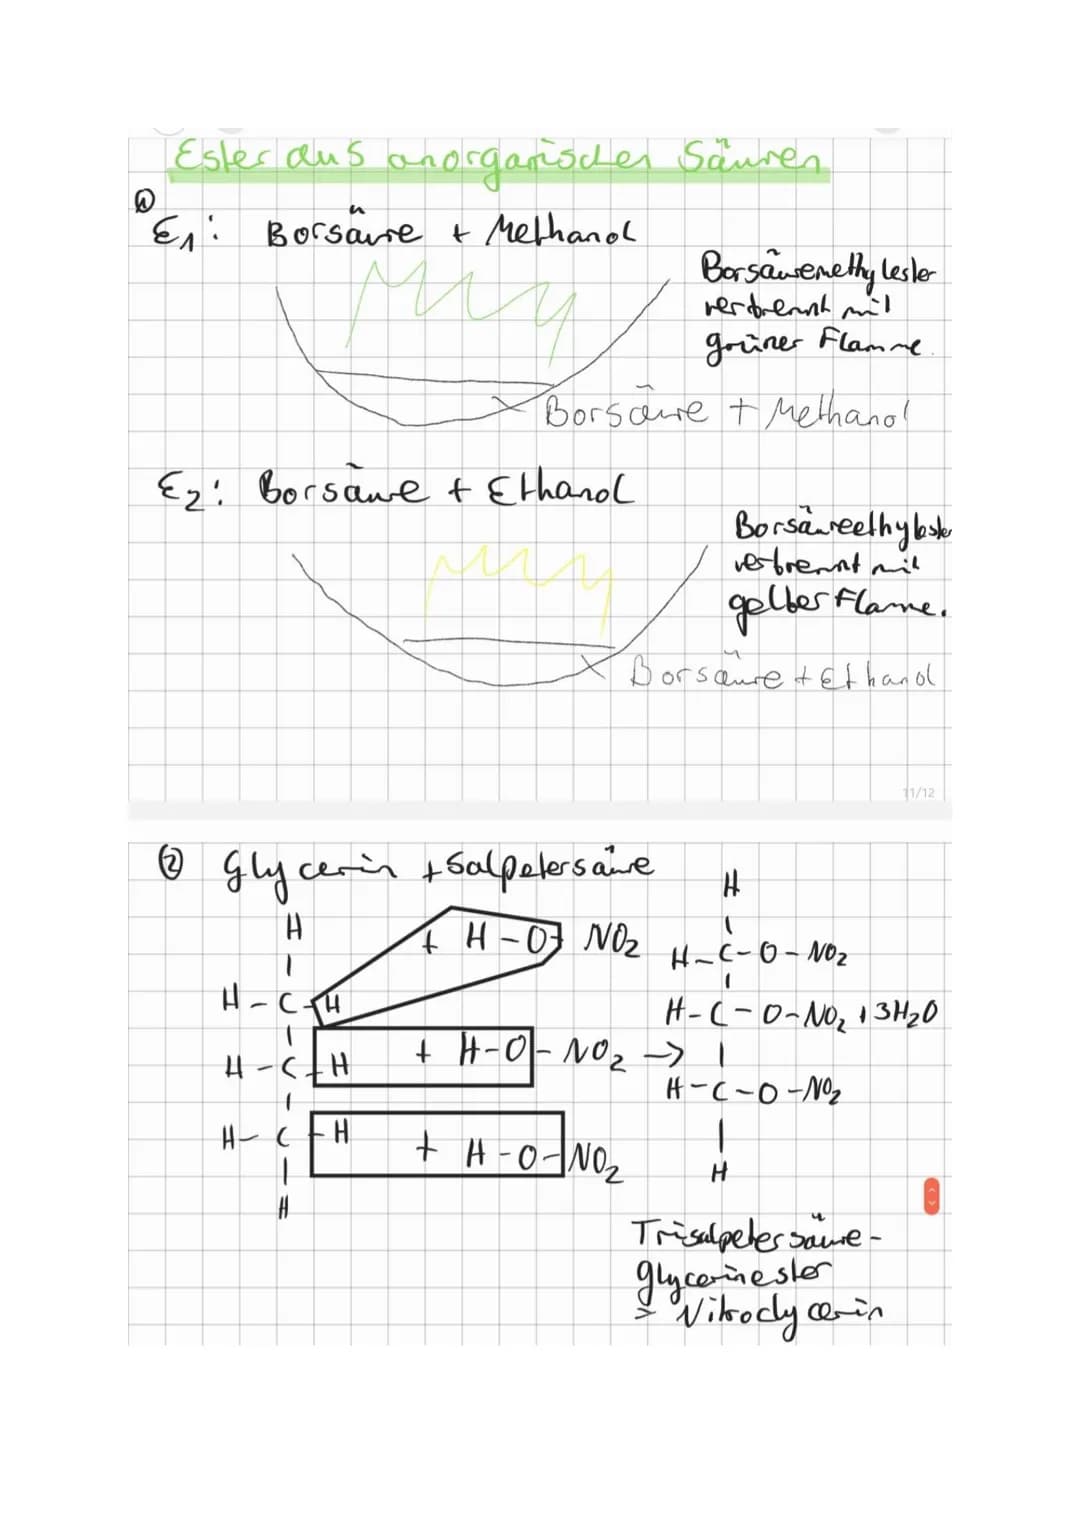 Ester aus anorganischen Säuren
①
E1: Borsäure + Methanol
Borsäuremethylester
verbrennt mit
grüner Flamme.
Borsäure + Methanol
E2: Borsäure + Ethanol
Borsäureethylester
verbrennt mit
gelber Flamme.
Borsäure + Ethanol
11/12
② Glycerin + Salpetersäure
H
H
+ H-O-NO2
H-C-O-NO2
H-C-H
H-C-O-NO2 + 3H2O
H-C-H + H-O-NO2 →
H-C-O-NO2
H-C-H + H-O-NO2
H
H
Trisalpetersäure-
glycerinester
> Nitroclycerin